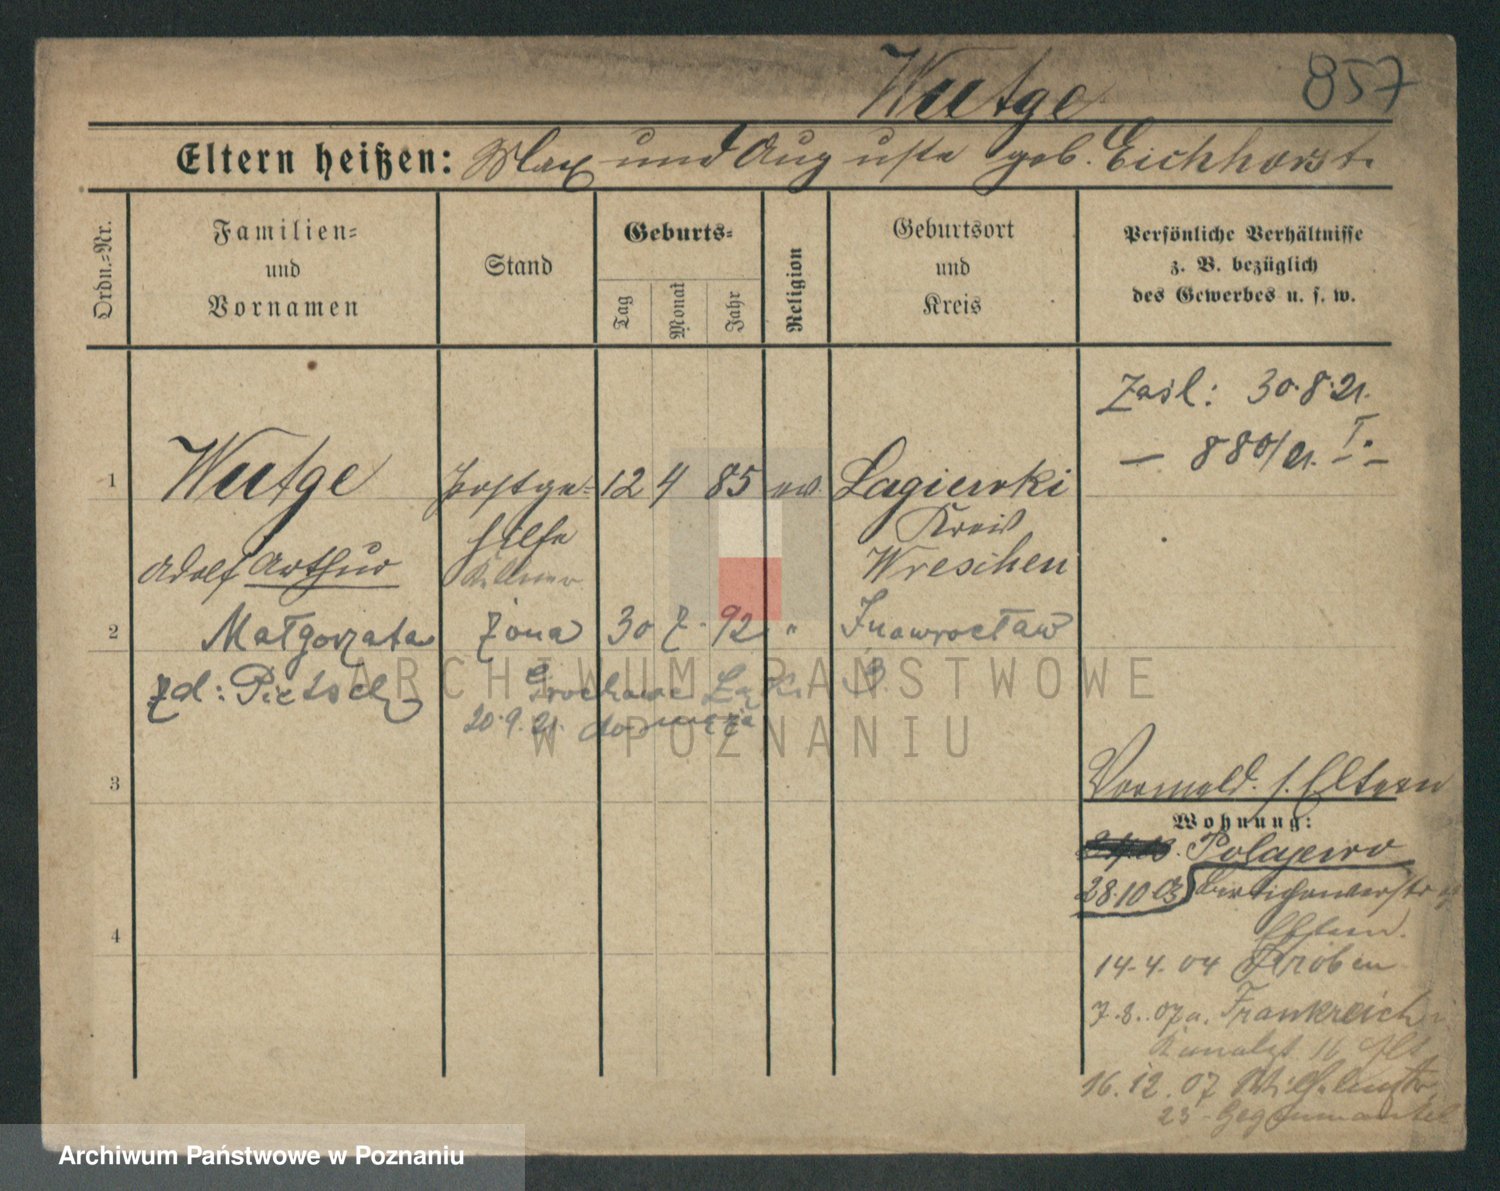 Wutge 857
Eltern heißen: Max und Auguste geb. Eichhorst.
Ordn.-Nr.
Familien-
und
Vornamen
Stand
Geburts-
Tag
Monat
Jahr
Religion
Geburtsort
und
Kreis
Persönliche Verhältnisse
z. B. bezüglich
des Gewerbes u. s. w.
Zasl: 30.8.21.
— 880/21. I. —
1 Wutge Postge- 12 4 85 ev. Lagiewki
hilfe Kreis
Adolf Arthur Kellner Wreschen
2 Małgorzata żona 30 7. 92 " Inowrocław
zd: Pietsch
20.9.21. do męża
3
Vormeld. s. Eltern
Wohnung:
Polajewo
28.10.03
Eltern.
4
14.4.04 Pröben
7.8.07 a. Frankreich
Kanalst 16
16.12.07 Wilhelmstr.
23
ARCHIWUM PAŃSTWOWE
W POZNANIU
Archiwum Państwowe w Poznaniu